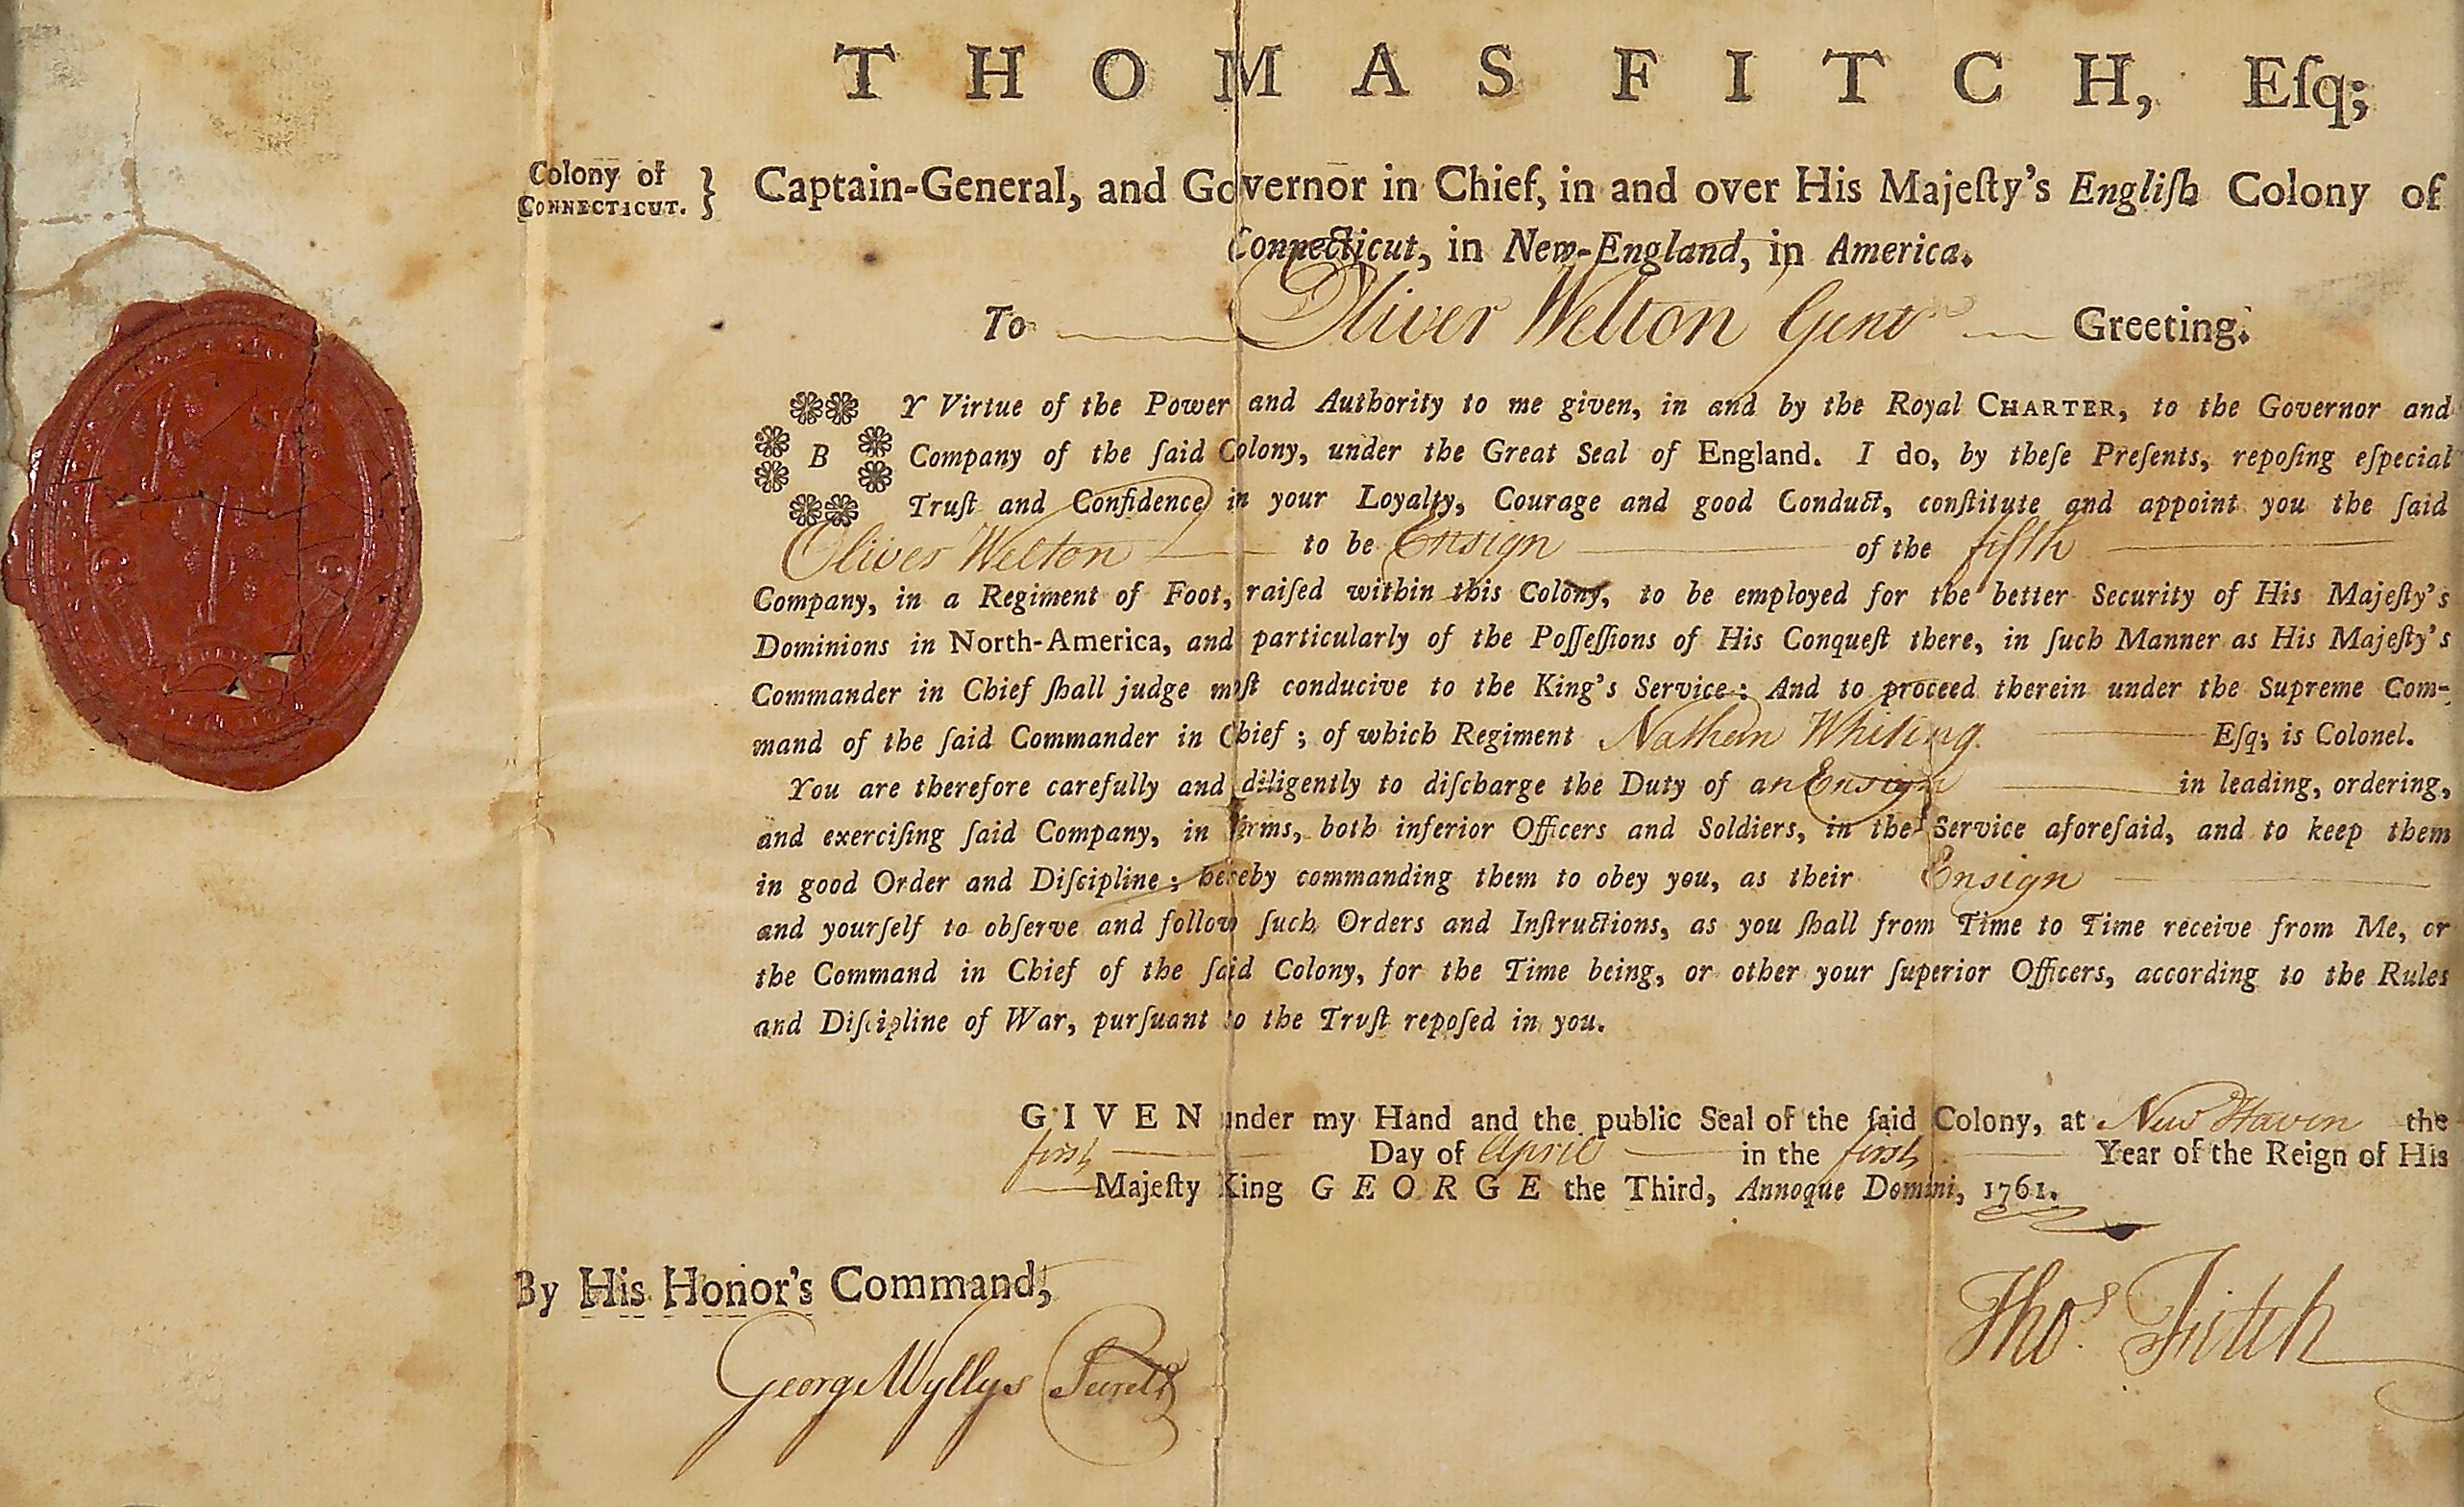 THOMAS FITCH, Eſq;
Colony of
CONNECTICUT. }
Captain-General, and Governor in Chief, in and over His Majeſty's Engliſh Colony of
Connecticut, in New-England, in America.
To Oliver Welton Gent Greeting.
BY Virtue of the Power and Authority to me given, in and by the Royal CHARTER, to the Governor and
Company of the ſaid Colony, under the Great Seal of England. I do, by theſe Preſents, repoſing eſpecial
Truſt and Confidence in your Loyalty, Courage and good Conduct, conſtitute and appoint you the ſaid
Oliver Welton to be Ensign of the fifth
Company, in a Regiment of Foot, raiſed within this Colony, to be employed for the better Security of His Majeſty's
Dominions in North-America, and particularly of the Poſſeſſions of His Conqueſt there, in ſuch Manner as His Majeſty's
Commander in Chief ſhall judge moſt conducive to the King's Service: And to proceed therein under the Supreme Com-
mand of the ſaid Commander in Chief; of which Regiment Nathan Whiting Eſq; is Colonel.
You are therefore carefully and diligently to diſcharge the Duty of an Ensign in leading, ordering,
and exerciſing ſaid Company, in Arms, both inferior Officers and Soldiers, in the Service aforeſaid, and to keep them
in good Order and Diſcipline; hereby commanding them to obey you, as their Ensign
and yourſelf to obſerve and follow ſuch Orders and Inſtructions, as you ſhall from Time to Time receive from Me, or
the Command in Chief of the ſaid Colony, for the Time being, or other your ſuperior Officers, according to the Rules
and Diſcipline of War, purſuant to the Truſt repoſed in you.
GIVEN under my Hand and the public Seal of the ſaid Colony, at New Haven the
first Day of April in the first Year of the Reign of His
Majeſty King GEORGE the Third, Annoque Domini, 1761.
By His Honor's Command,
Thos. Fitch
George Wyllys Secrety